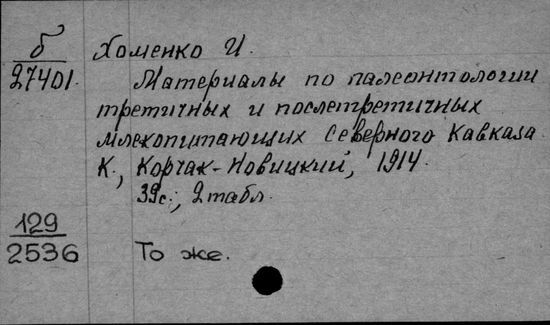 б Хоменко И.
27401. Материалы по палеонтологии
третичных и послетретичных
млекопитающих Северного Кавказа.
К., Корчак-Новицкий, 1914.
39с., 2 табл.
129
2536 То же.